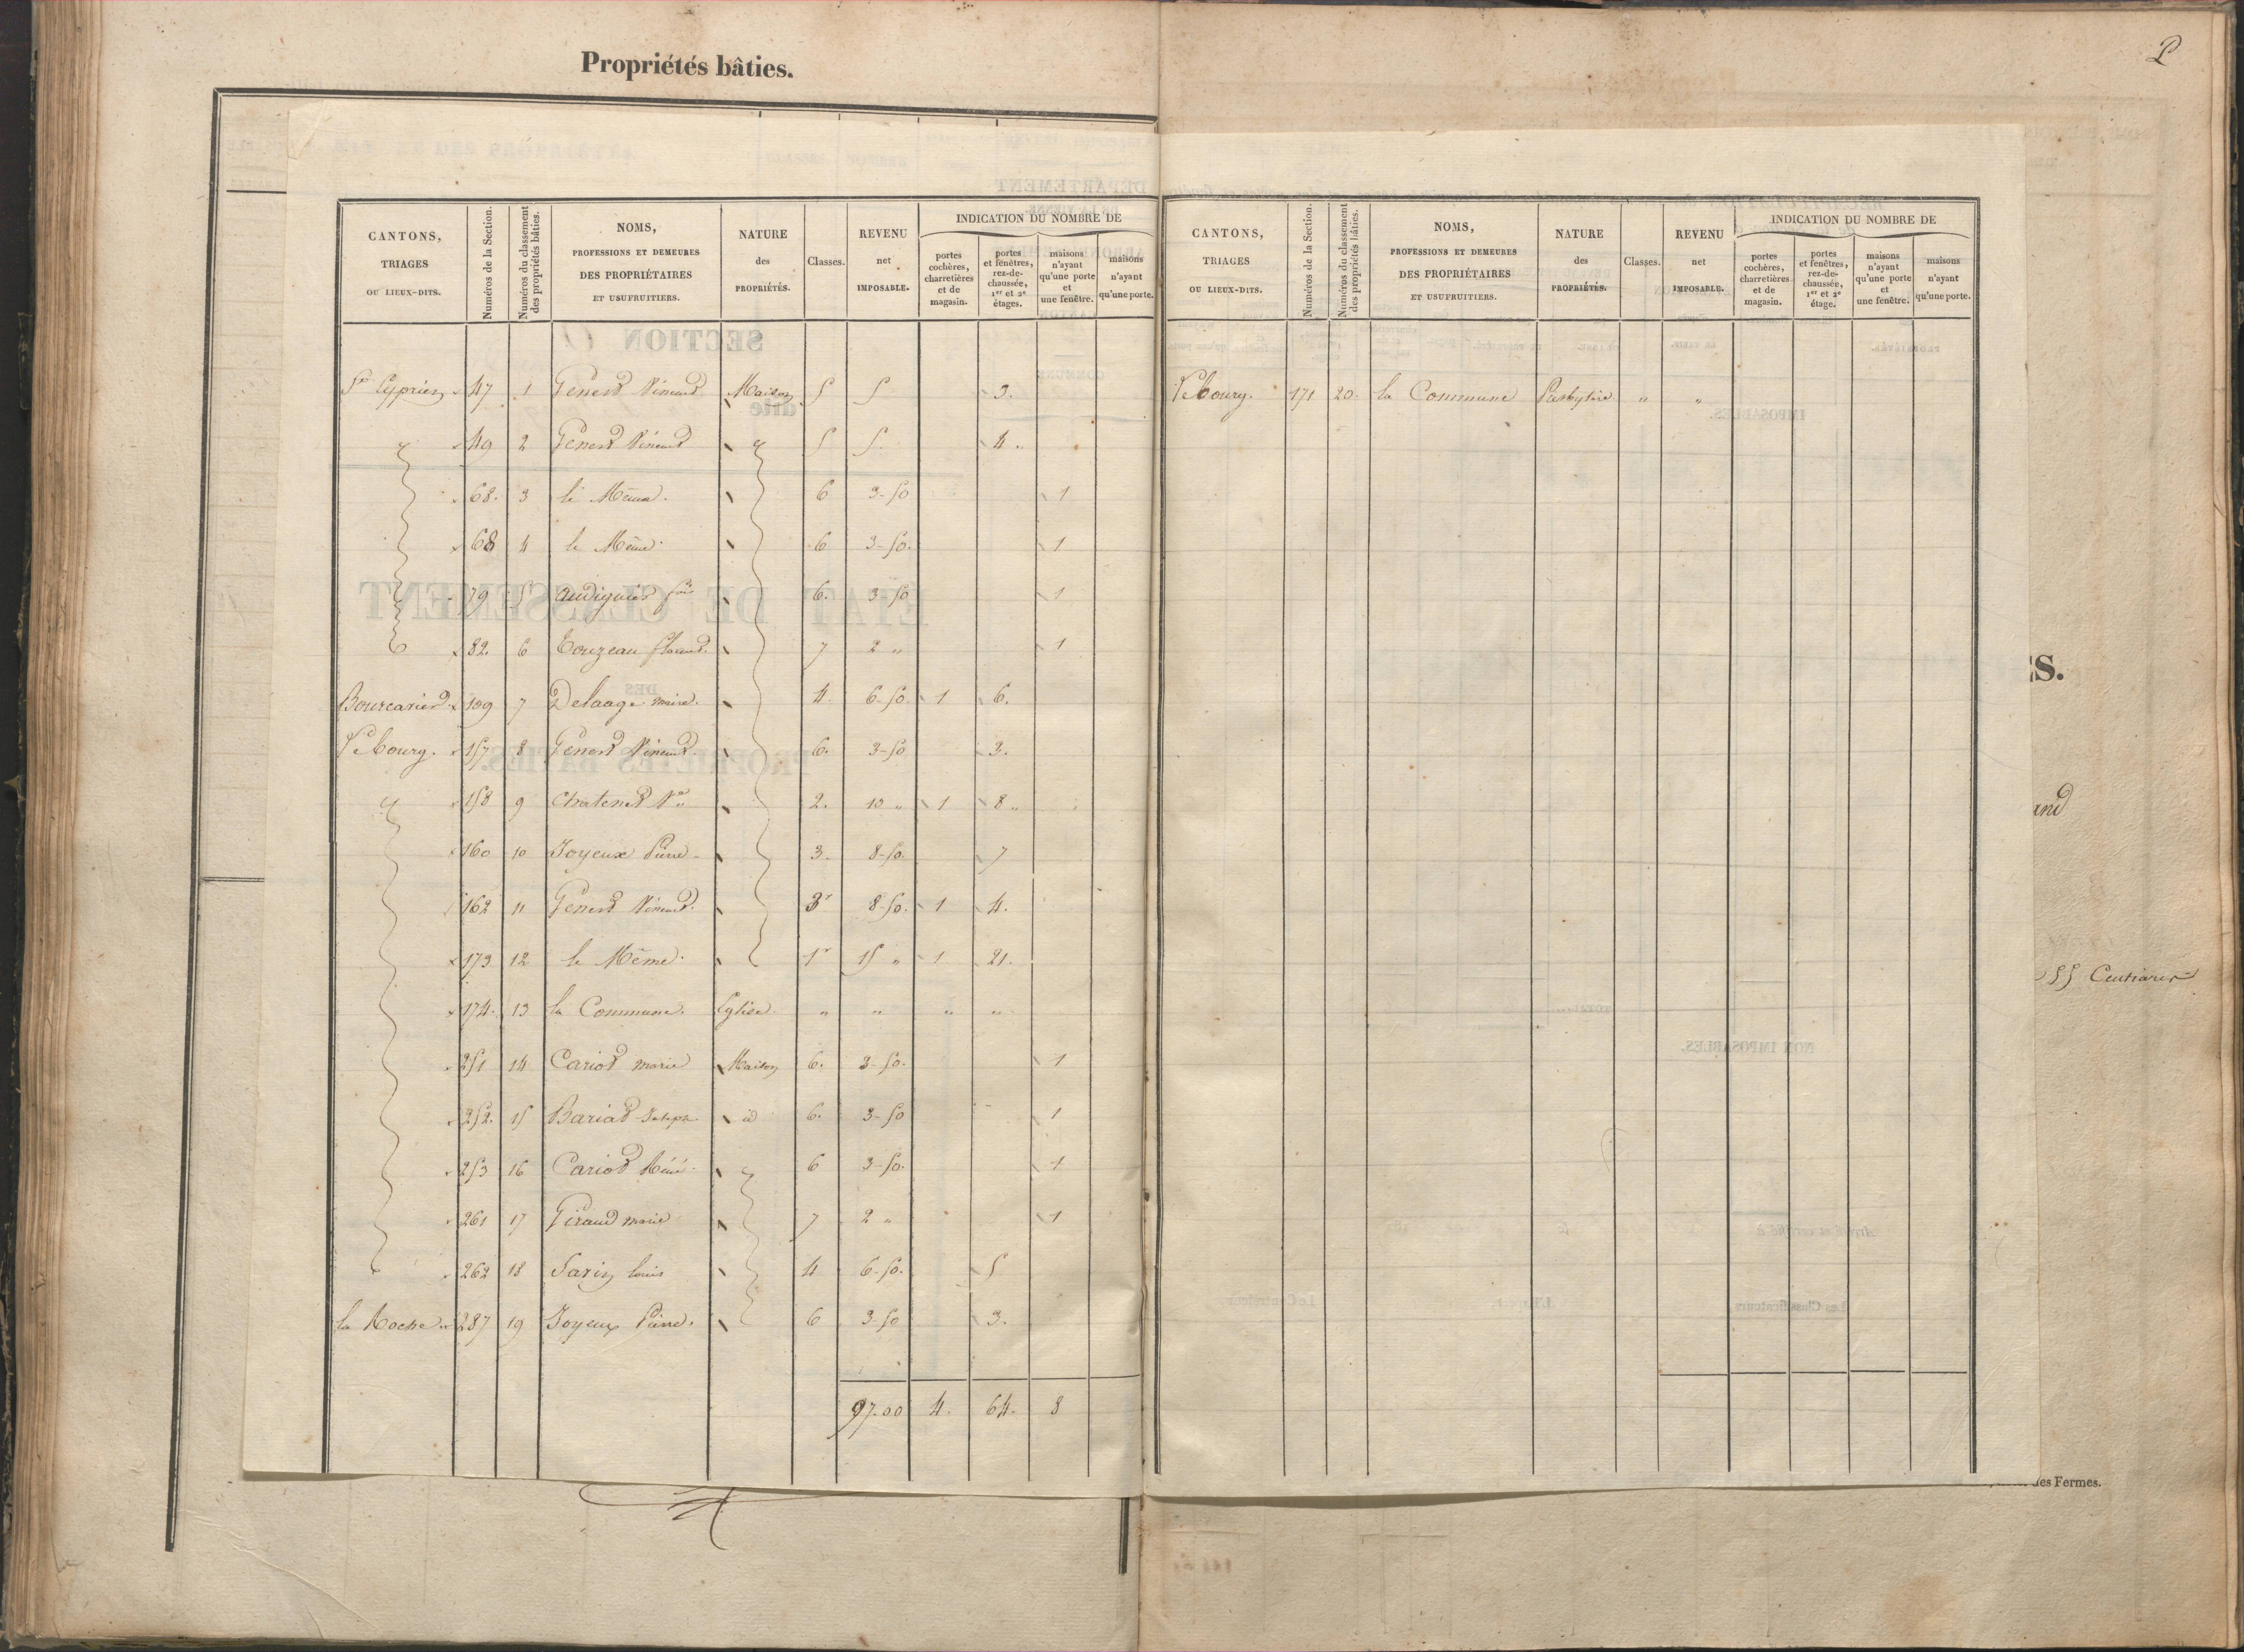 Propriétés bâties.
2
CANTONS, TRIAGES OU LIEUX-DITS. | Numéros de la Section. | Numéros du classement des propriétés bâties. | NOMS, PROFESSIONS ET DEMEURES DES PROPRIÉTAIRES ET USUFRUITIERS. | NATURE des PROPRIÉTÉS. | Classes. | REVENU net IMPOSABLE. | INDICATION DU NOMBRE DE | portes cochères, charretières et de magasin. | portes et fenêtres, rez-de-chaussée, 1er et 2e étages. | maisons n'ayant qu'une porte et une fenêtre. | maisons n'ayant qu'une porte.
St Cyprien 47 1 Genest Maison 5 5 3.
49 2 Genest 5 5 4.
68. 3 le Même. 6 3-50 1
68 4 le Même. 6 3-50. 1
79 5 audiguier 6. 3-50 1
82. 6 7 2 " 1
109 7 Delaage maire. 4. 6-50 1 6.
le bourg. 157 8 Genest 6. 3-50 3.
158 9 Chatenet Ve 2. 10 " 1 8 "
160 10 Joyeux Pierre 3. 8-50. 7
162 11 Genest 3e 8-50. 1 4.
173 12 le Même. 1r 15 " 1 21.
174. 13 la Commune. Eglise. " " " "
251 14 Cariot marie Maison 6. 3-50. 1
252. 15 Bariat Joseph id 6. 3-50 1
253 16 Cariot Réné. 6 3-50. 1
261 17 Giraud marie 7 2 " 1
262 18 Sarin louis 4 6-50. 5
la Roche 287 19 Joyeux Pierre. 6 3-50 3.
97.00 4. 64. 8
CANTONS, TRIAGES OU LIEUX-DITS. | Numéros de la Section. | Numéros du classement des propriétés bâties. | NOMS, PROFESSIONS ET DEMEURES DES PROPRIÉTAIRES ET USUFRUITIERS. | NATURE des PROPRIÉTÉS. | Classes. | REVENU net IMPOSABLE. | INDICATION DU NOMBRE DE | portes cochères, charretières et de magasin. | portes et fenêtres, rez-de-chaussée, 1er et 2e étage. | maisons n'ayant qu'une porte et une fenêtre. | maisons n'ayant qu'une porte.
le bourg. 171 20. la Commune Presbytère " "
S.
and
55 Centiares
des Fermes.